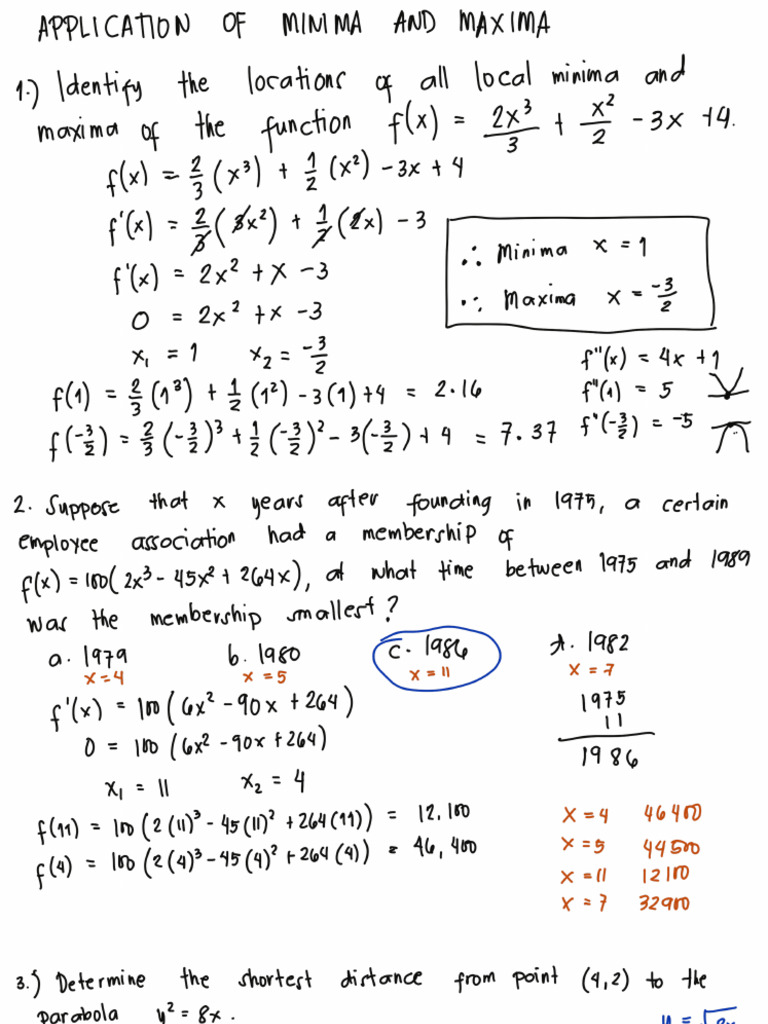 APPLICATION OF MINIMA AND MAXIMA
1.) Identify the locations of all local minima and
maxima of the function f(x) = 2x³/3 + x²/2 - 3x + 4.
f(x) = 2/3 (x³) + 1/2 (x²) - 3x + 4
f'(x) = 2/3 (3x²) + 1/2 (2x) - 3
f'(x) = 2x² + x - 3
0 = 2x² + x - 3
x₁ = 1 x₂ = -3/2
∴ Minima x = 1
∴ Maxima x = -3/2
f(1) = 2/3 (1³) + 1/2 (1²) - 3(1) + 4 = 2.16
f(-3/2) = 2/3 (-3/2)³ + 1/2 (-3/2)² - 3(-3/2) + 4 = 7.37
f''(x) = 4x + 1
f''(1) = 5
f''(-3/2) = -5
2. Suppose that x years after founding in 1975, a certain
employee association had a membership of
f(x) = 100(2x³ - 45x² + 264x), at what time between 1975 and 1989
was the membership smallest?
a. 1979 b. 1980 c. 1986 d. 1982
x = 4 x = 5 x = 11 x = 7
f'(x) = 100 (6x² - 90x + 264)
0 = 100 (6x² - 90x + 264)
x₁ = 11 x₂ = 4
1975
11
1986
f(11) = 100 (2(11)³ - 45(11)² + 264(11)) = 12,100
f(4) = 100 (2(4)³ - 45(4)² + 264(4)) = 46,400
x = 4 46400
x = 5 44500
x = 11 12100
x = 7 32900
3.) Determine the shortest distance from point (4,2) to the
parabola y² = 8x.
y = √8x